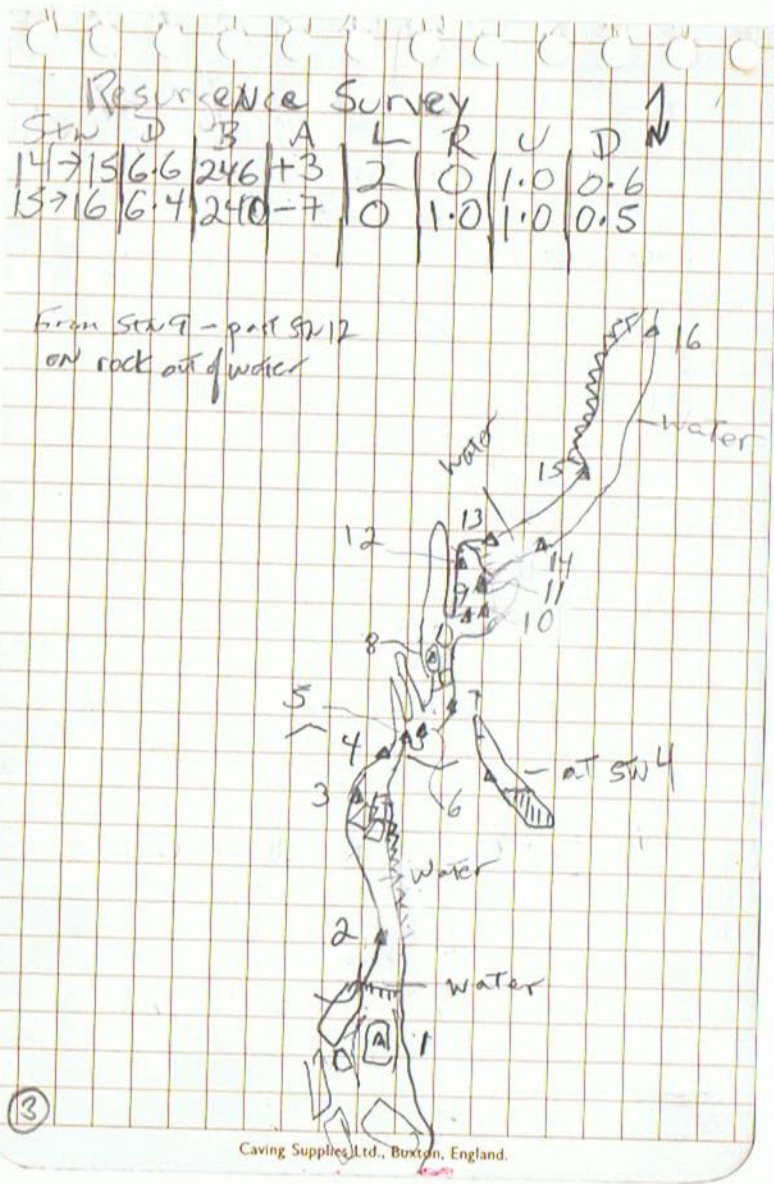 Resurgence Survey
N
Stn D B A L R U D
14→15 6.6 246 +3 2 0 1.0 0.6
15→16 6.4 240 -7 0 1.0 1.0 0.5
From Stn 9 - past Stn 12
on rock out of water
16
water
water
15
13
12
14
9
11
10
8
7
5
4
at STN 4
3
6
water
2
water
1
3
Caving Supplies Ltd., Buxton, England.